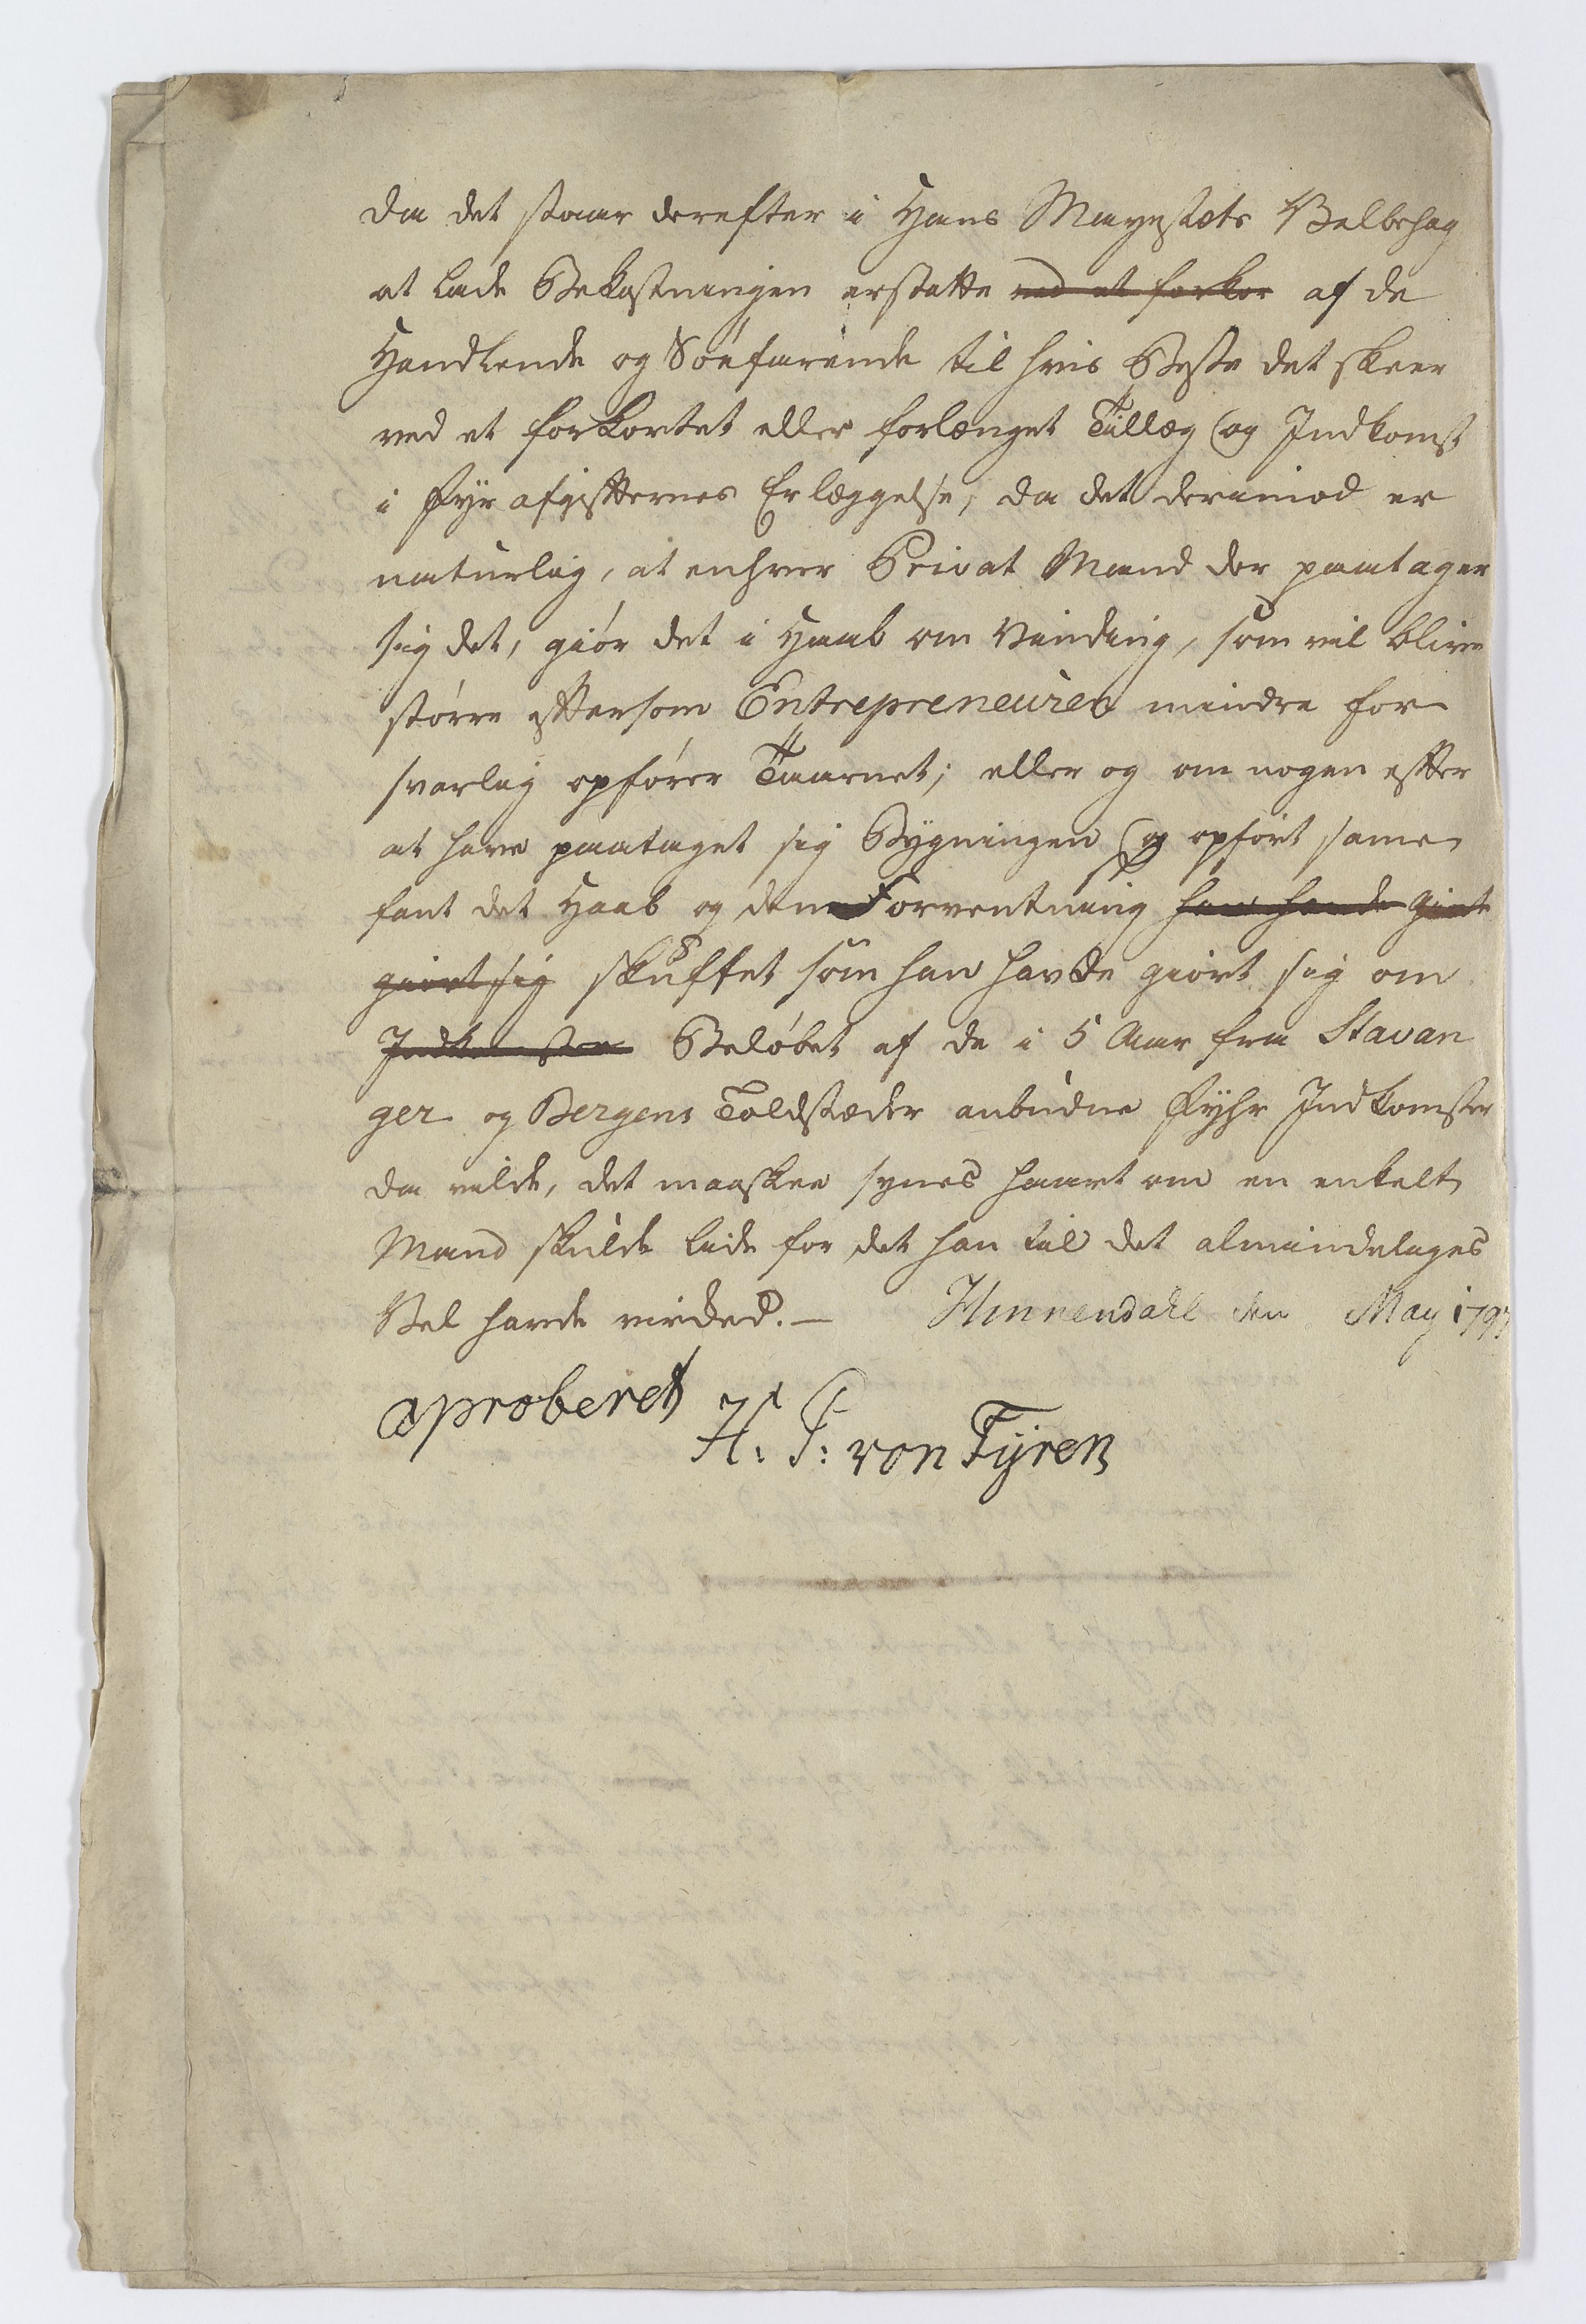 da det staar derefter i Hans Mayestets Velbehag
at lade Bekostningen erstatte ved et forkor af de
Handlende og Söefarende til hvis Beste det skeer
ved et forkortet eller forlænget Tillæg og Indkomst
i Fyr afgifternes Erlæggelse, da det derimod er
naturlig, at enhver Privat Mand der paatager
sig det, giör det i Haab om Vinding, som vil blive
större eftersom Entrepreneuren mindre for
svarlig opförer Taarnet; eller og om nogen efter
at have paataget sig Bygningen og opfört same
fant det Haab og den Forventning han havde giort
giort sig skuffet som han havde giört sig om
Indkomsten Belöbet af de i 5 Aar fra Stavan
ger og Bergens Toldstæder anbudne Fyhr Indkomster
da vilde, det maaskee synes haart om en enkelt
Mand skulde lide for det han til det almindeliges
Vel havde virded. — Hinnendahl den May 179
aproberet
H: P: von Fyren